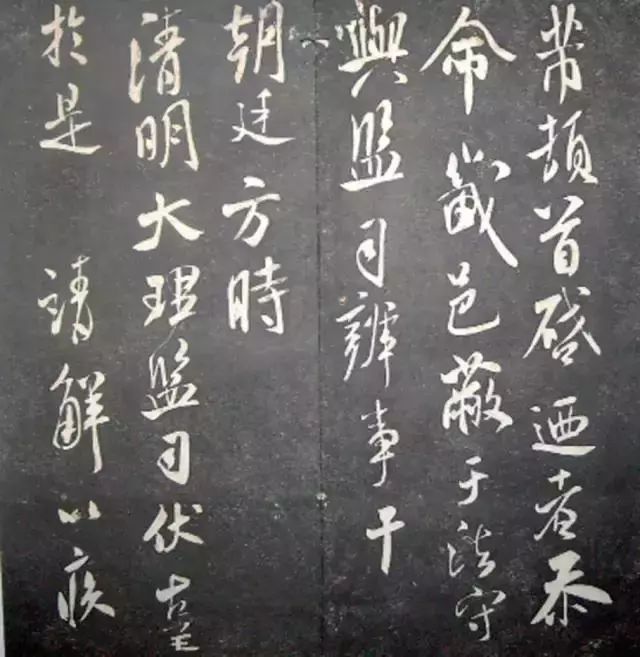 芾頓首啓迺者忝
命畿邑蔽于法守
與監司辨事干
朝廷方時
清明大理監司伏辜
於是 請解以疾